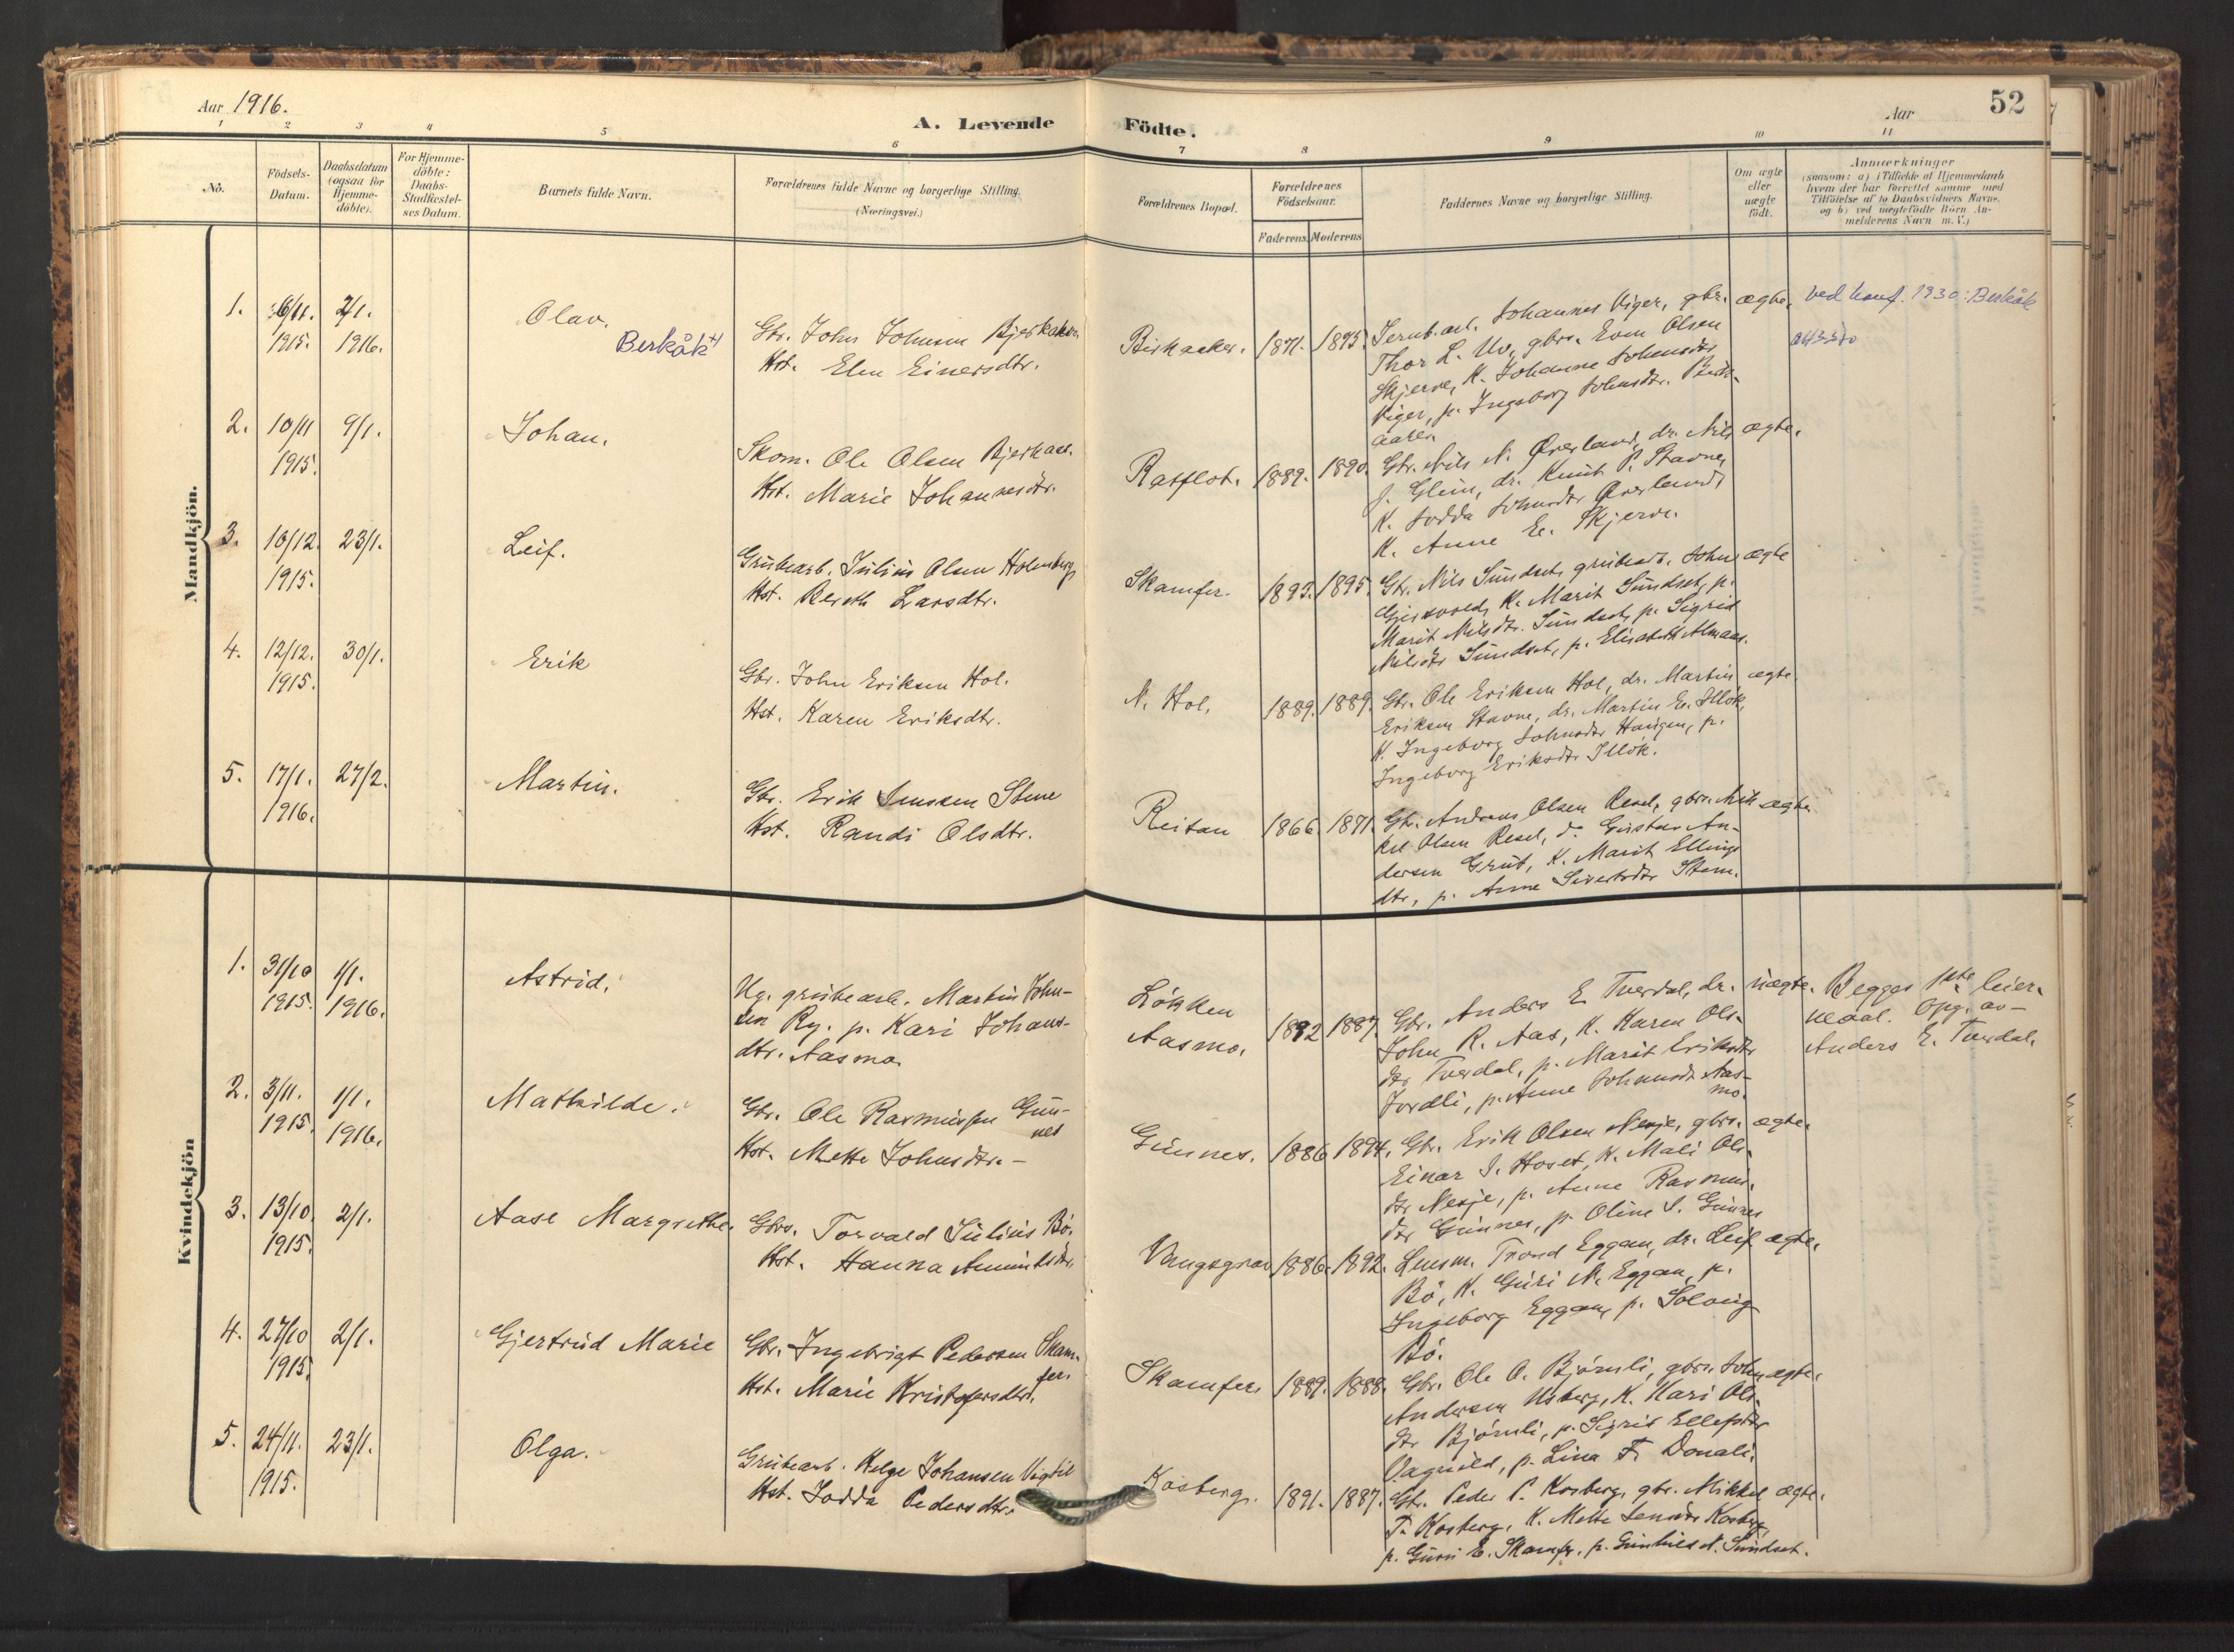 Aar 1916.
A. Levende Födte.
Aar
52
1 2 3 4 5 6 7 8 9 10 11
No.
Födsels-Datum.
Daabsdatum (ogsaa for Hjemme-döbte).
For Hjemme-döbte: Daabs-Stadfæstel-ses Datum.
Barnets fulde Navn.
Forældrenes fulde Navne og borgerlige Stilling.
(Næringsvei.)
Forældrenes Bopæl.
Forældrenes Födselsaar.
Faderens. Moderens
Faddernes Navne og borgerlige Stilling.
Om ægte eller uægte födt.
Anmærkninger
(saasom: a) i Tilfælde af Hjemmedaab
hvem der har forrettet samme med
Tilföielse af to Daabsvidners Navne.
og b) ved uægtefödte Börn An-
melderens Navn m.V.)
Mandkjön.
1. 1915. 2/1. 1916.
Olav.
Berkåk
Gbr. John Johnsen
Hst. Elen Einersdtr.
1871. 1875.
Johannes Viger, gbr.
Thor L. Uv, gbr. Even Olsen
Skjerve, K. Johanne Johnsdtr
Viger, p. Ingeborg Johnsdtr.
ægte.
ved konf. 1930: Berkåk
2. 10/11 1915. 9/1.
Johan.
Skom. Ole Olsen
Hst. Marie Johannesdtr.
Ratflot. 1889. 1890.
Gbr. Nils N. Øverland, dr. Nils
J. Glein, dr. Knut P. Stavne,
K. Jodda Johnsdtr Øverland,
K. Anne E. Skjerve.
ægte.
3. 10/12. 1915. 23/1.
Leif.
Grubearb. Julius Olsen Holmberg
Hst. Bereth Larsdtr.
Skamfer. 1893. 1895.
Gbr. Nils Sundset, grubearb. John
K. Marit Sundset, p.
Marit Nilsdtr. Sundset, p. Sigrid
Nilsdtr Sundset, p. Elisabeth Almaas.
ægte
4. 12/12. 1915. 30/1.
Erik
Gbr. John Eriksen Hol.
Hst. Karen Eriksdtr.
N. Hol. 1889. 1889.
Gbr. Ole Eriksen Hol, dr. Martin
Eriksen Stavne, dr. Martin E. Illøk,
K. Ingeborg Johnsdtr Haugen, p.
Ingeborg Eriksdtr Illøk.
ægte.
5. 17/1. 1916. 27/2.
Martin.
Gbr. Erik Jenssen Stene
Hst. Randi Olsdtr.
Reitan 1866. 1871.
Gbr. Andreas Olsen Resel, gbr. Mik-
kel Olsen Resel, d. Gustav An-
dersen Grut, K. Marit Ellings
dtr, p. Anne Sivertsdtr Sten.
ægte.
Kvindekjön
1. 31/10 1915. 1/1. 1916.
Astrid.
Ug. grubearb. Martin John-
sen Ry. p. Kari Johans-
dtr. Aasmo.
Løkken
Aasmo. 1892 1887.
Gbr. Anders E. Tverdal, dr.
John R. Aas, K. Karen Ols-
dtr Tverdal, p. Marit Eriksdtr
Jordli, p. Anne Johansdtr Aas-
mo.
uægte.
Begges 1ste leier-
maal. Opg. av
Anders E. Tverdal.
2. 3/11. 1915. 1/1. 1916.
Mathilde.
Gbr. Ole Rasmussen Gun-
nes
Hst. Mette Johnsdtr.
Gunnes. 1886 1894.
Gbr. Erik Olsen Nesje, gbr.
Einar I. Hoset, K. Mali Ols-
dtr Nesje, p. Anne Rasmus-
dtr Gunnes, p. Oline S. Gunnes
ægte.
3. 13/10. 1915. 2/1.
Aase Margrethe.
Gbr. Torvald Julius Bö.
Hst. Hanna
Vangsgrav 1886. 1892.
Lensm. Trond Eggan, dr. Leif
Bö, K. Guri M. Eggan, p.
Ingeborg Eggan, p. Solveig
Bö.
ægte.
4. 27/10 1915. 2/1.
Gjertrud Marie
Gbr. Ingebrigt Pedersen Skam-
fer.
Hst. Marie Kristofersdtr.
Skamfer. 1889. 1888.
Gbr. Ole O. Bjørnli, gbr. John
Andersen Usberg, K. Kari Ols-
dtr Bjørnli, p. Sigrid Ellefsdtr
p. Lina F. Donali.
ægte.
5. 24/11. 1915. 23/1.
Olga.
Grubearb. Helge Johansen
Hst. Jodda Pedersdtr.
Kosberg. 1891. 1887.
Gbr. Peder P. Kosberg, gbr. Mikkel
T. Kosberg, K. Mette Jensdtr Kosberg,
p. Guri E. Skamfer, p. Gunhild N. Sundset.
ægte.